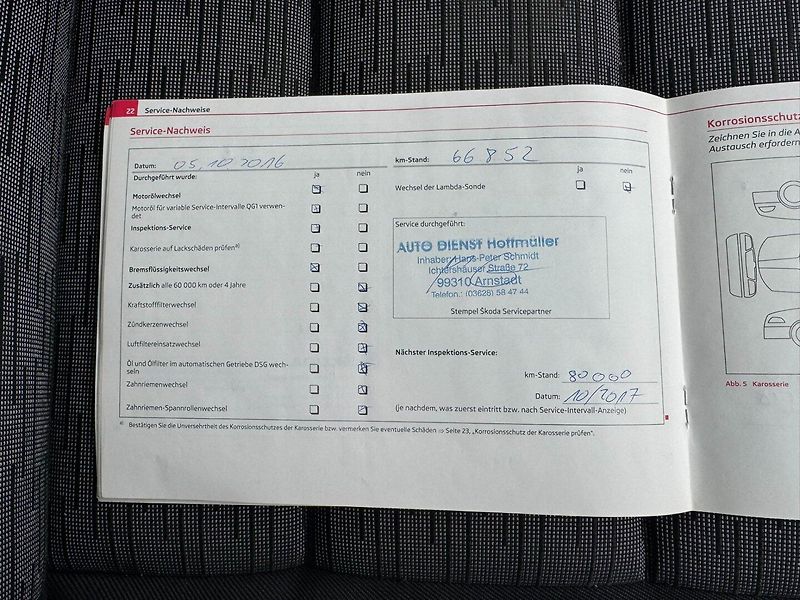 22 Service-Nachweise
Service-Nachweis
Datum: 05.10.2016
Durchgeführt wurde: ja nein
Motorölwechsel
Motoröl für variable Service-Intervalle QG1 verwen-
det
Inspektions-Service
Karosserie auf Lackschäden prüfen a)
Bremsflüssigkeitswechsel
Zusätzlich alle 60 000 km oder 4 Jahre
Kraftstofffilterwechsel
Zündkerzenwechsel
Luftfiltereinsatzwechsel
Öl und Ölfilter im automatischen Getriebe DSG wech-
seln
Zahnriemenwechsel
Zahnriemen-Spannrollenwechsel
km-Stand: 66852
ja nein
Wechsel der Lambda-Sonde
Service durchgeführt:
AUTO DIENST Hoffmüller
Inhaber: Hans-Peter Schmidt
Ichtershäuser Straße 72
99310 Arnstadt
Telefon.: (03628) 58 47 44
Stempel Škoda Servicepartner
Nächster Inspektions-Service:
km-Stand: 80000
Datum: 10/2017
(je nachdem, was zuerst eintritt bzw. nach Service-Intervall-Anzeige)
a) Bestätigen Sie die Unversehrtheit des Korrosionsschutzes der Karosserie bzw. vermerken Sie eventuelle Schäden ⇒ Seite 23, „Korrosionsschutz der Karosserie prüfen“.
Korrosionsschutz
Zeichnen Sie in die A
Austausch erfordern
Abb. 5 Karosserie